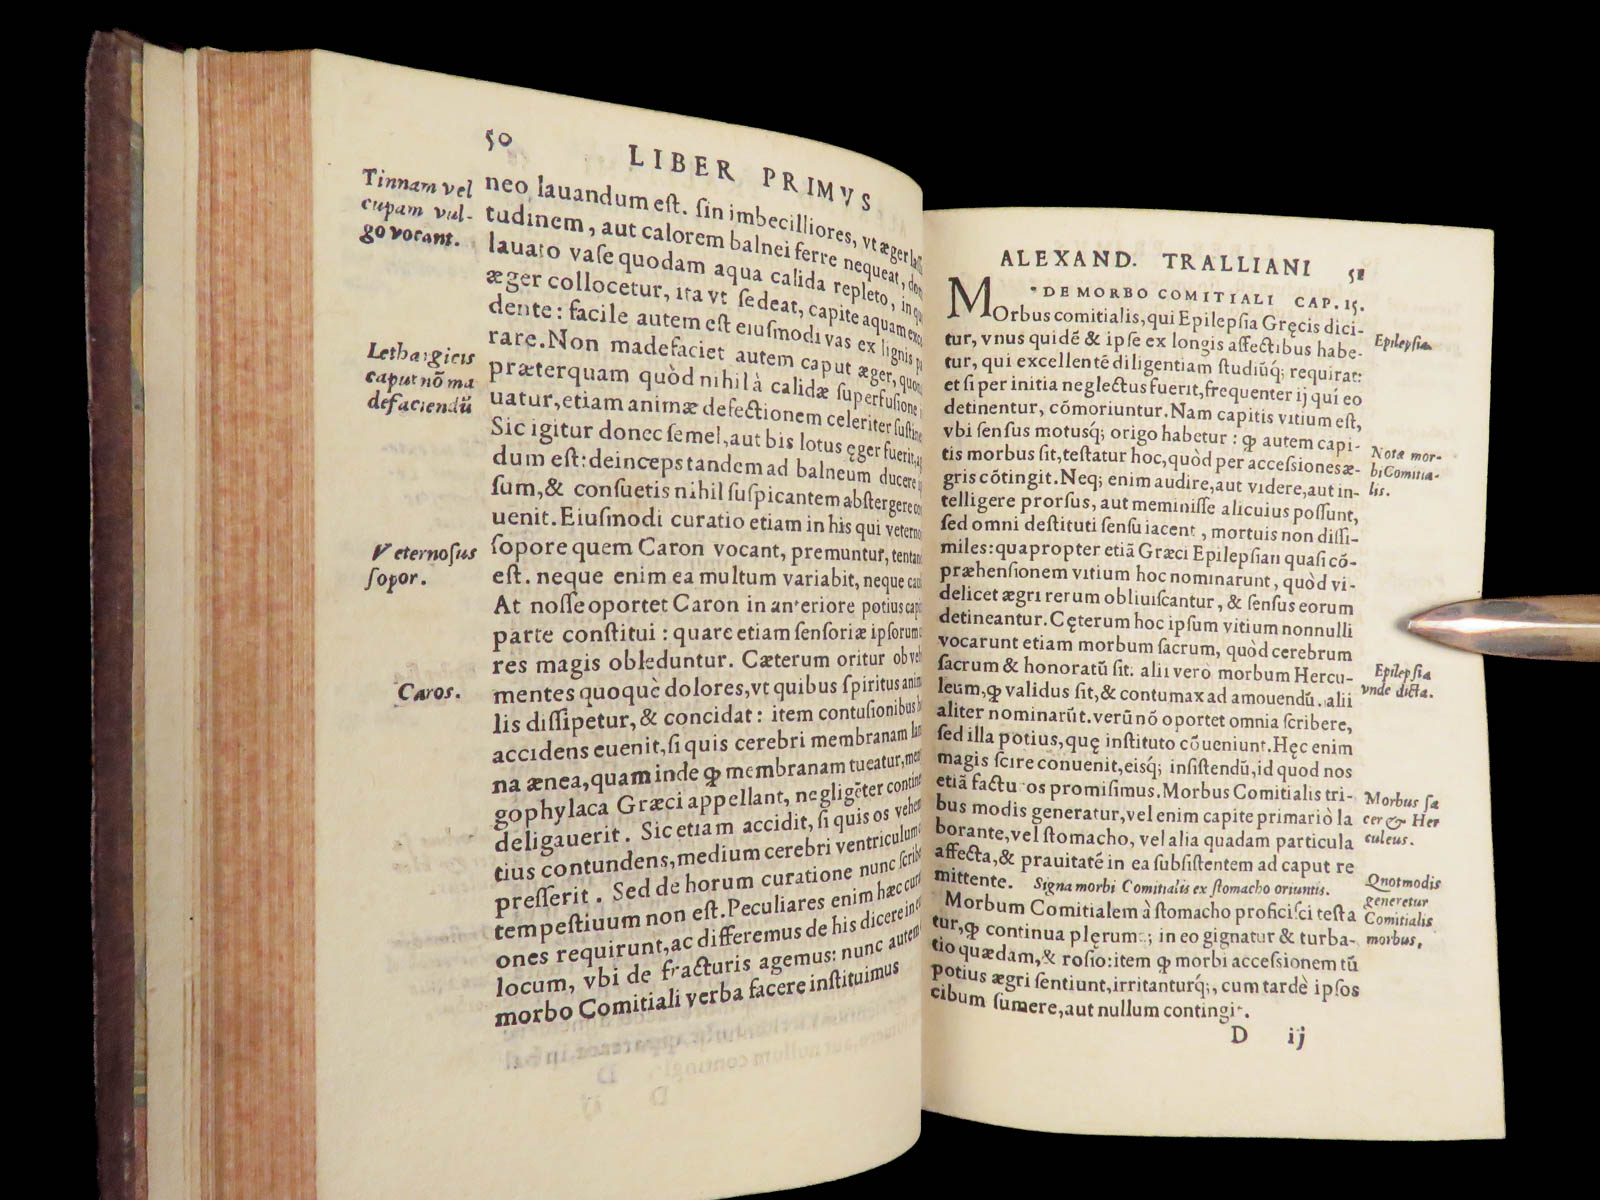 50
LIBER PRIMVS
Tinnam vel
cupam vul-
go vocant.
neo lauandum eſt. ſin imbecilliores, vt æger
tudinem, aut calorem balnei ferre nequeat,
lauato vaſe quodam aqua calida repleto, in
æger collocetur, ita vt ſedeat, capite aquam
dente: facile autem eſt eiuſmodi vas ex lignis
rare. Non madefaciet autem caput æger,
Lethargicis
caput nõ ma
defaciendũ
præterquam quòd nihil à calidæ ſuperfuſione
uatur, etiam animæ defectionem celeriter
Sic igitur donec ſemel, aut bis lotus ęger fuerit,
dum eſt: deinceps tandem ad balneum ducere
ſum, & conſuetis nihil ſuſpicantem abſtergere
uenit. Eiuſmodi curatio etiam in his qui
Veternoſus
ſopor.
ſopore quem Caron vocant, premuntur,
eſt. neque enim ea multum variabit, neque
At noſſe oportet Caron in anteriore potius
parte conſtitui: quare etiam ſenſoriæ
res magis obleduntur. Cæterum oritur ob
Caros.
mentes quoquè dolores, vt quibus ſpiritus
lis diſſipetur, & concidat: item contuſionibus
accidens euenit, ſi quis cerebri membranam
na ænea, quam inde ꝙ membranam tueatur,
gophylaca Græci appellant, negligẽter
deligauerit. Sic etiam accidit, ſi quis os
tius contundens, medium cerebri
preſſerit. Sed de horum curatione nunc
tempeſtiuum non eſt. Peculiares enim hæc
ones requirunt, ac differemus de his dicere
locum, vbi de fracturis agemus: nunc autem
morbo Comitiali verba facere inſtituimus
ALEXAND. TRALLIANI 51
DE MORBO COMITIALI CAP. 15.
MOrbus comitialis, qui Epilepſia Gręcis dici-
tur, vnus quidẽ & ipſe ex longis affectibus habe-
Epilepſia
tur, qui excellentẽ diligentiam ſtudiũq; requirat:
et ſi per initia neglectus fuerit, frequenter ij qui eo
detinentur, cõmoriuntur. Nam capitis vitium eſt,
vbi ſenſus motusq; origo habetur: ꝙ autem capi-
tis morbus ſit, teſtatur hoc, quòd per acceſsiones æ-
Notæ mor-
bi Comitia-
lis.
gris cõtingit. Neq; enim audire, aut videre, aut in-
telligere prorſus, aut meminiſſe alicuius poſſunt,
ſed omni deſtituti ſenſu iacent, mortuis non diſſi-
miles: quapropter etiã Græci Epilepſian quaſi cõ-
præhenſionem vitium hoc nominarunt, quòd vi-
delicet ægri rerum obliuiſcantur, & ſenſus eorum
detineantur. Cęterum hoc ipſum vitium nonnulli
vocarunt etiam morbum ſacrum, quòd cerebrum
ſacrum & honoratũ ſit. alii verò morbum Hercu-
Epilepſia
vnde dicta.
leum, ꝙ validus ſit, & contumax ad amouendũ. alii
aliter nominarũt. verũ nõ oportet omnia ſcribere,
ſed illa potius, quę inſtituto cõueniunt. Hęc enim
magis ſcire conuenit, eisq; inſiſtendũ, id quod nos
etiã facturos promiſimus. Morbus Comitialis tri-
Morbus ſa
cer & Her
culeus.
bus modis generatur, vel enim capite primariò la
borante, vel ſtomacho, vel alia quadam particula
affecta, & prauitatẽ in ea ſubſiſtentem ad caput re
mittente. Signa morbi Comitialis ex ſtomacho oriuntis.
Quotmodis
generetur
Comitialis
morbus,
Morbum Comitialem à ſtomacho proficiſci teſta
tur, ꝙ continua plęrumq; in eo gignatur & turba-
tio quædam, & roſio: item ꝙ morbi acceſsionem tũ
potius ægri ſentiunt, irritanturq;, cum tardè ipſos
cibum ſumere, aut nullum contingit.
D ij